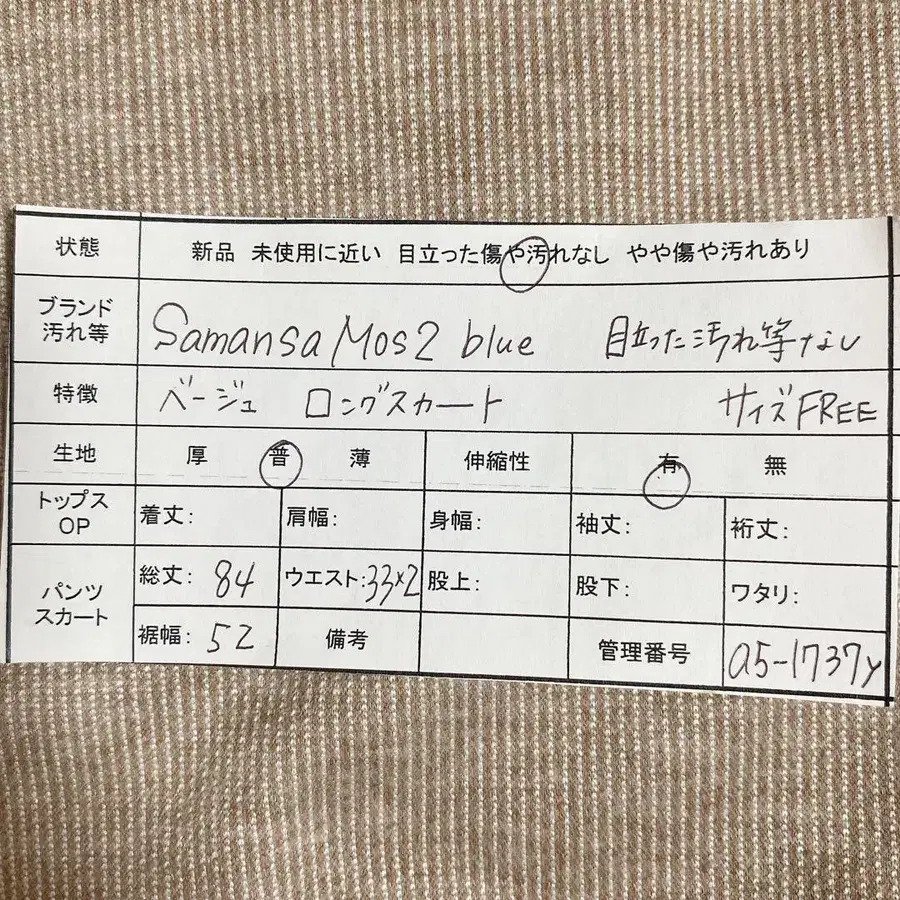 状態 新品 未使用に近い 目立った傷や汚れなし やや傷や汚れあり
ブランド
汚れ等
Samansa Mos2 blue 目立った汚れ等なし
特徴 ベージュ ロングスカート サイズFREE
生地 厚 普 薄 伸縮性 有 無
トップス
OP
着丈: 肩幅: 身幅: 袖丈: 裄丈:
パンツ
スカート
総丈: 84 ウエスト:33×2 股上: 股下: ワタリ:
裾幅: 52 備考 管理番号 a5-1737y